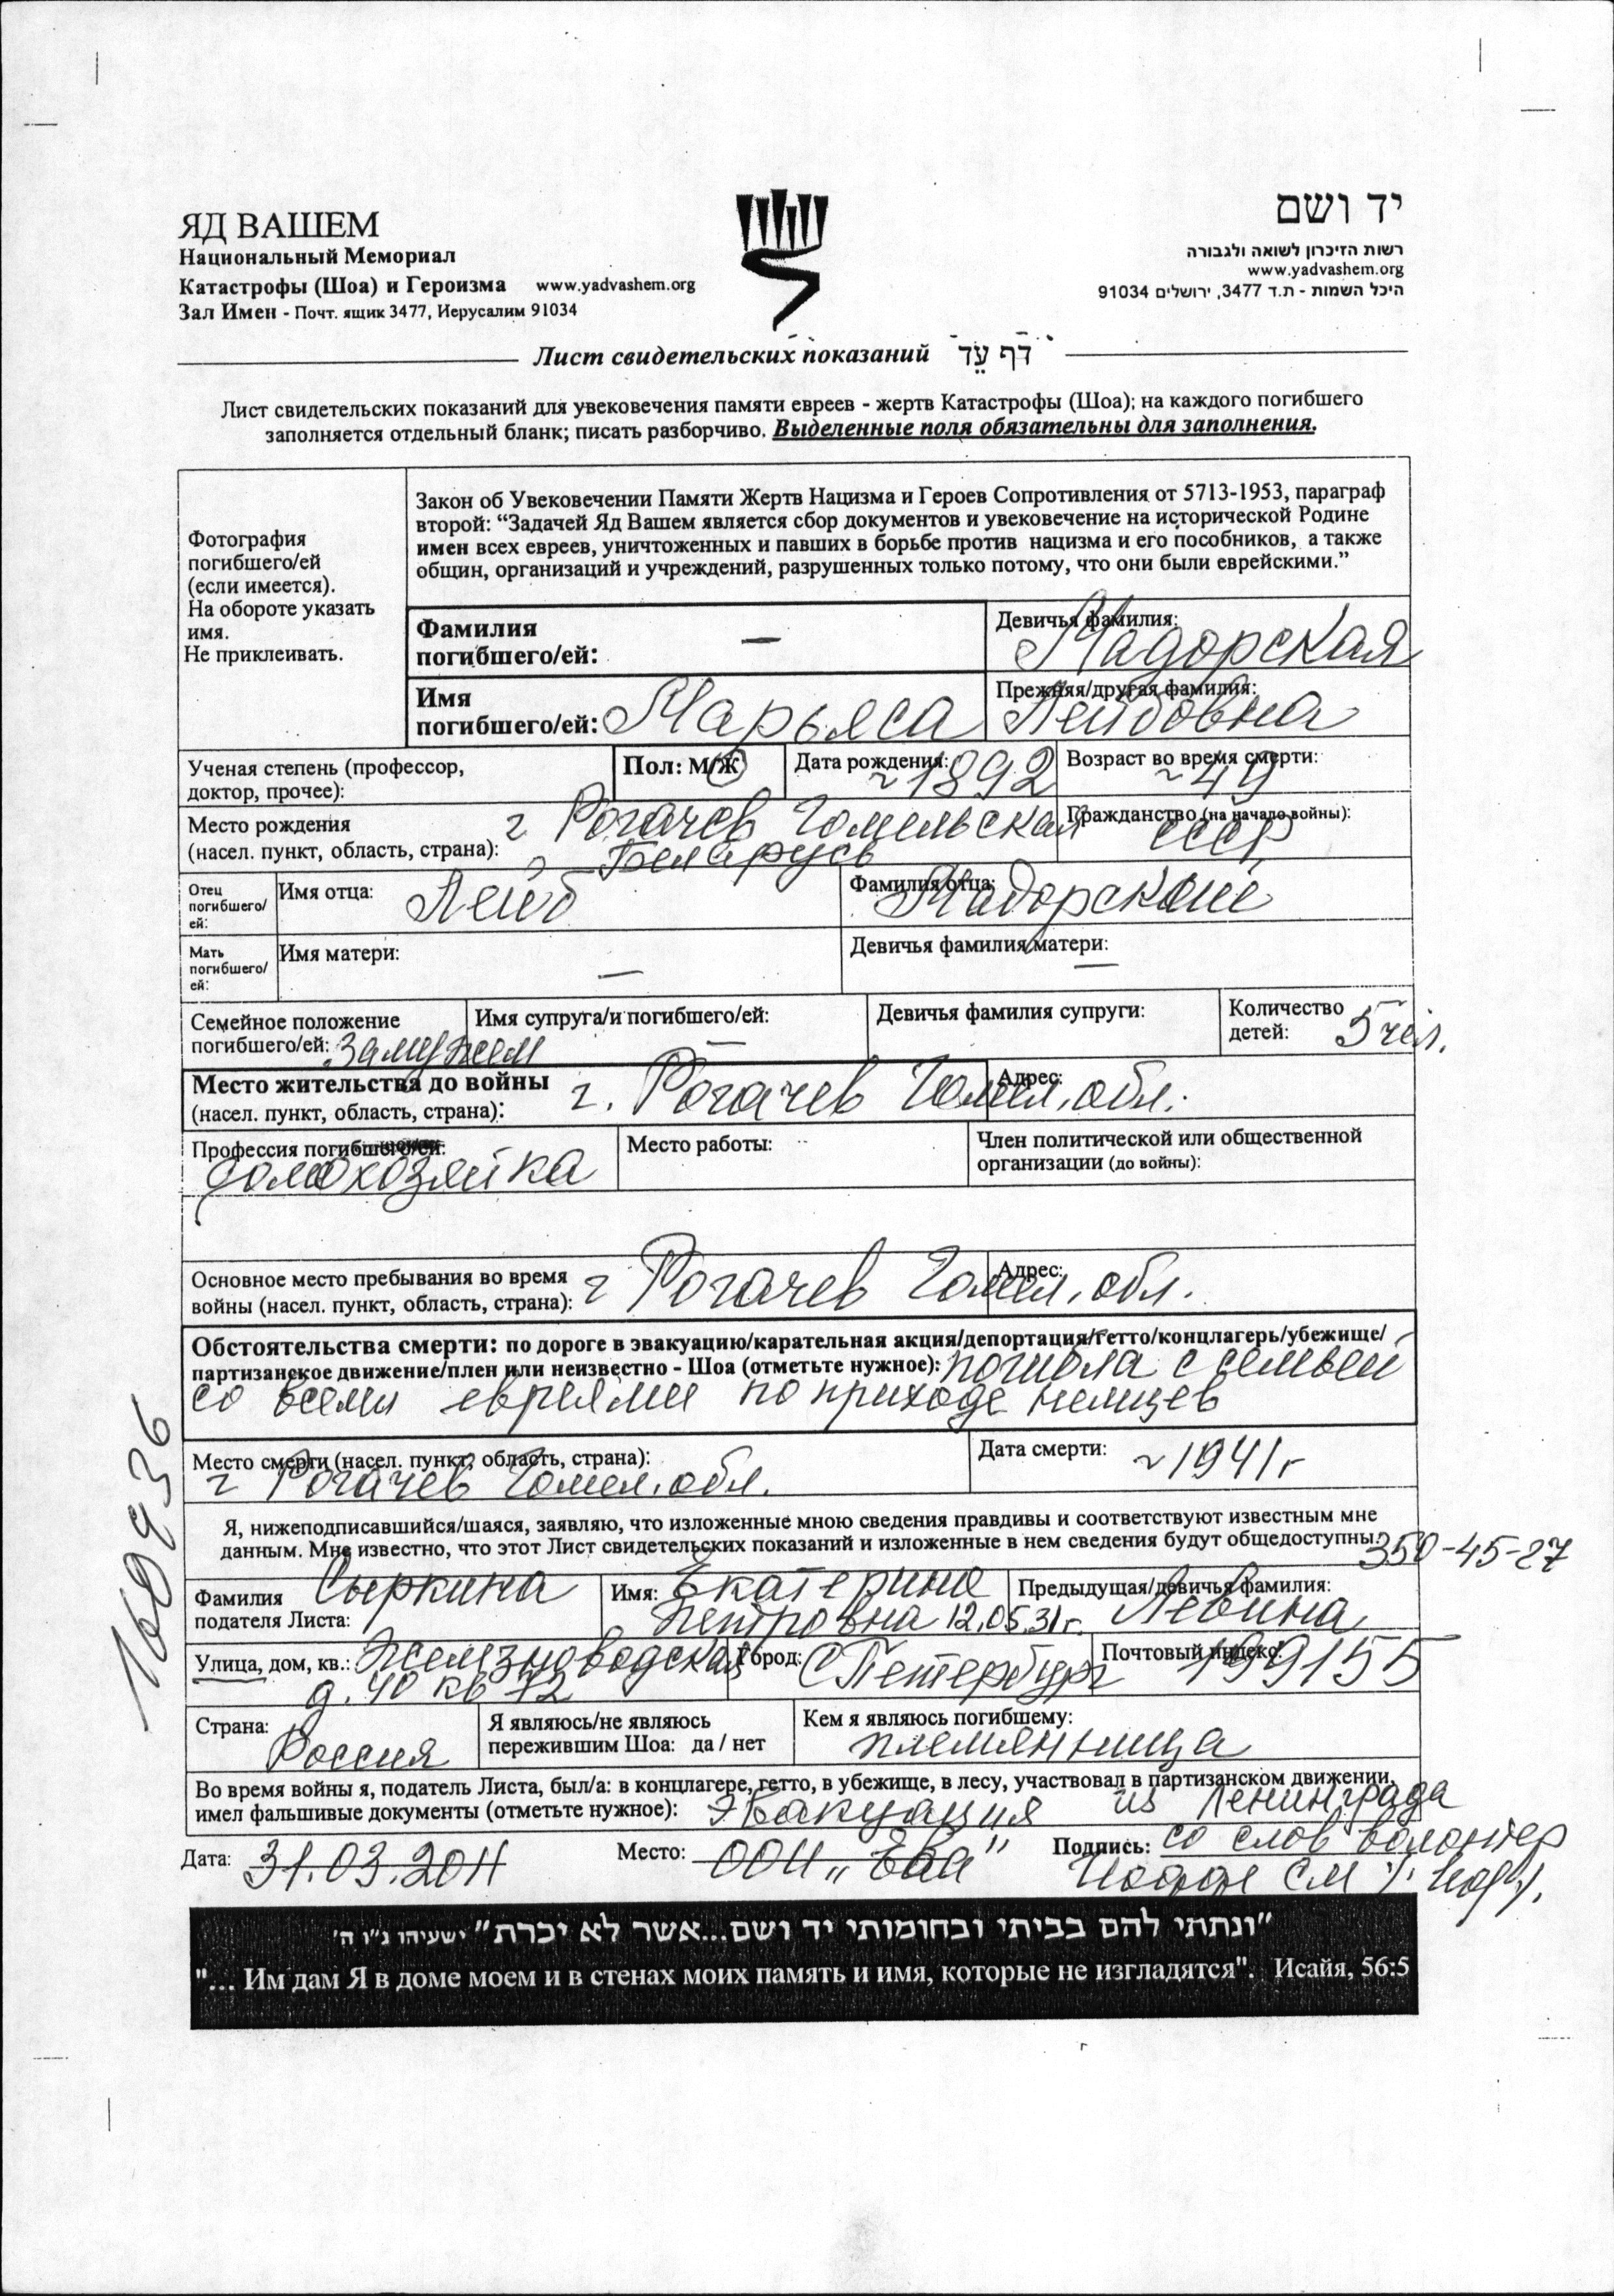 ЯД ВАШЕМ
Национальный Мемориал
Катастрофы (Шоа) и Героизма www.yadvashem.org
Зал Имен - Почт. ящик 3477, Иерусалим 91034
יד ושם
רשות הזיכרון לשואה ולגבורה
www.yadvashem.org
היכל השמות - ת.ד 3477, ירושלים 91034
Лист свидетельских показаний דַּף עֵד
Лист свидетельских показаний для увековечения памяти евреев - жертв Катастрофы (Шоа); на каждого погибшего
заполняется отдельный бланк; писать разборчиво. Выделенные поля обязательны для заполнения.
Фотография
погибшего/ей
(если имеется).
На обороте указать
имя.
Не приклеивать.
Закон об Увековечении Памяти Жертв Нацизма и Героев Сопротивления от 5713-1953, параграф
второй: “Задачей Яд Вашем является сбор документов и увековечение на исторической Родине
имен всех евреев, уничтоженных и павших в борьбе против нацизма и его пособников, а также
общин, организаций и учреждений, разрушенных только потому, что они были еврейскими.”
Фамилия
погибшего/ей: —
Девичья фамилия:
Мадорская
Имя
погибшего/ей: Марьяса
Прежняя/другая фамилия:
Лейбовна
Ученая степень (профессор,
доктор, прочее):
Пол: М/Ж
Дата рождения:
~1892
Возраст во время смерти:
~49
Место рождения
(насел. пункт, область, страна):
г Рогачев Гомельская
о Беларусь
Гражданство (на начало войны):
СССР
Отец
погибшего/
ей:
Имя отца: Лейб
Фамилия отца:
Мадорский
Мать
погибшего/
ей:
Имя матери: —
Девичья фамилия матери: —
Семейное положение
погибшего/ей: замужем
Имя супруга/и погибшего/ей: —
Девичья фамилия супруги:
Количество
детей: 5 чел.
Место жительства до войны
(насел. пункт, область, страна): г. Рогачев Гомел. обл.
Адрес:
Профессия погибшего/ей:
домохозяйка
Место работы:
Член политической или общественной
организации (до войны):
Основное место пребывания во время
войны (насел. пункт, область, страна): г Рогачев Гомел. обл.
Адрес:
Обстоятельства смерти: по дороге в эвакуацию/карательная акция/депортация/гетто/концлагерь/убежище/
партизанское движение/плен или неизвестно - Шоа (отметьте нужное): погибла с семьей
со всеми евреями по приходе немцев
Место смерти (насел. пункт, область, страна):
г Рогачев Гомел. обл.
Дата смерти: ~1941г
Я, нижеподписавшийся/шаяся, заявляю, что изложенные мною сведения правдивы и соответствуют известным мне
данным. Мне известно, что этот Лист свидетельских показаний и изложенные в нем сведения будут общедоступны.
350-45-27
Фамилия
подателя Листа: Сыркина
Имя: Екатерина
Петровна 12.05.31г.
Предыдущая/девичья фамилия:
Левина
Улица, дом, кв.: Железноводская
д. 40 кв 72
Город: С Петербург
Почтовый индекс: 199155
Страна:
Россия
Я являюсь/не являюсь
пережившим Шоа: да / нет
Кем я являюсь погибшему:
племянница
Во время войны я, податель Листа, был/а: в концлагере, гетто, в убежище, в лесу, участвовал в партизанском движении,
имел фальшивые документы (отметьте нужное): Эвакуация из Ленинграда
Дата: 31.03.2011
Место: ООИ „Ева”
Подпись: со слов волонтер
"ונתתי להם בביתי ובחומותי יד ושם...אשר לא יכרת" ישעיהו נ"ו ה'
"... Им дам Я в доме моем и в стенах моих память и имя, которые не изгладятся". Исайя, 56:5